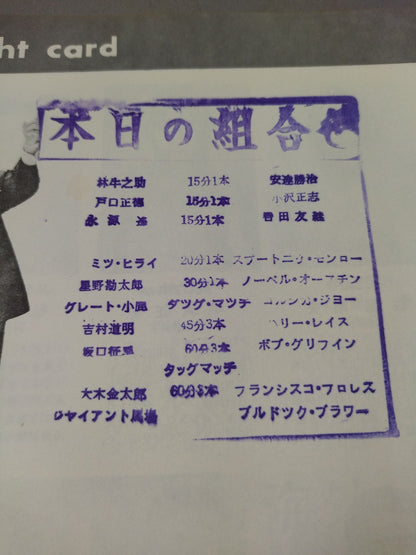 ht card
本日の組合せ
林牛之助 15分1本 安達勝治
戸口正徳 15分1本 小沢正志
永源遥 15分1本 香田友継
ミツ・ヒライ 20分1本 スプートニク・モンロー
星野勘太郎 30分1本 ノーベル・オースチン
グレート・小鹿 タッグ・マッチ コルシカ・ジョー
吉村道明 45分3本 ハリー・レイス
坂口征二 60分3本 ボブ・グリフイン
タッグマッチ
大木金太郎 60分3本 フランシスコ・フロレス
ジャイアント馬場 ブルドック・ブラワー